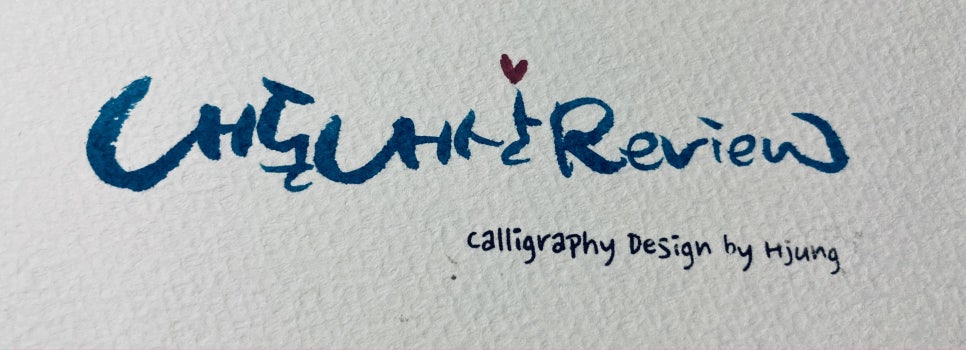 내돈내산 Review
Calligraphy Design by Hjung